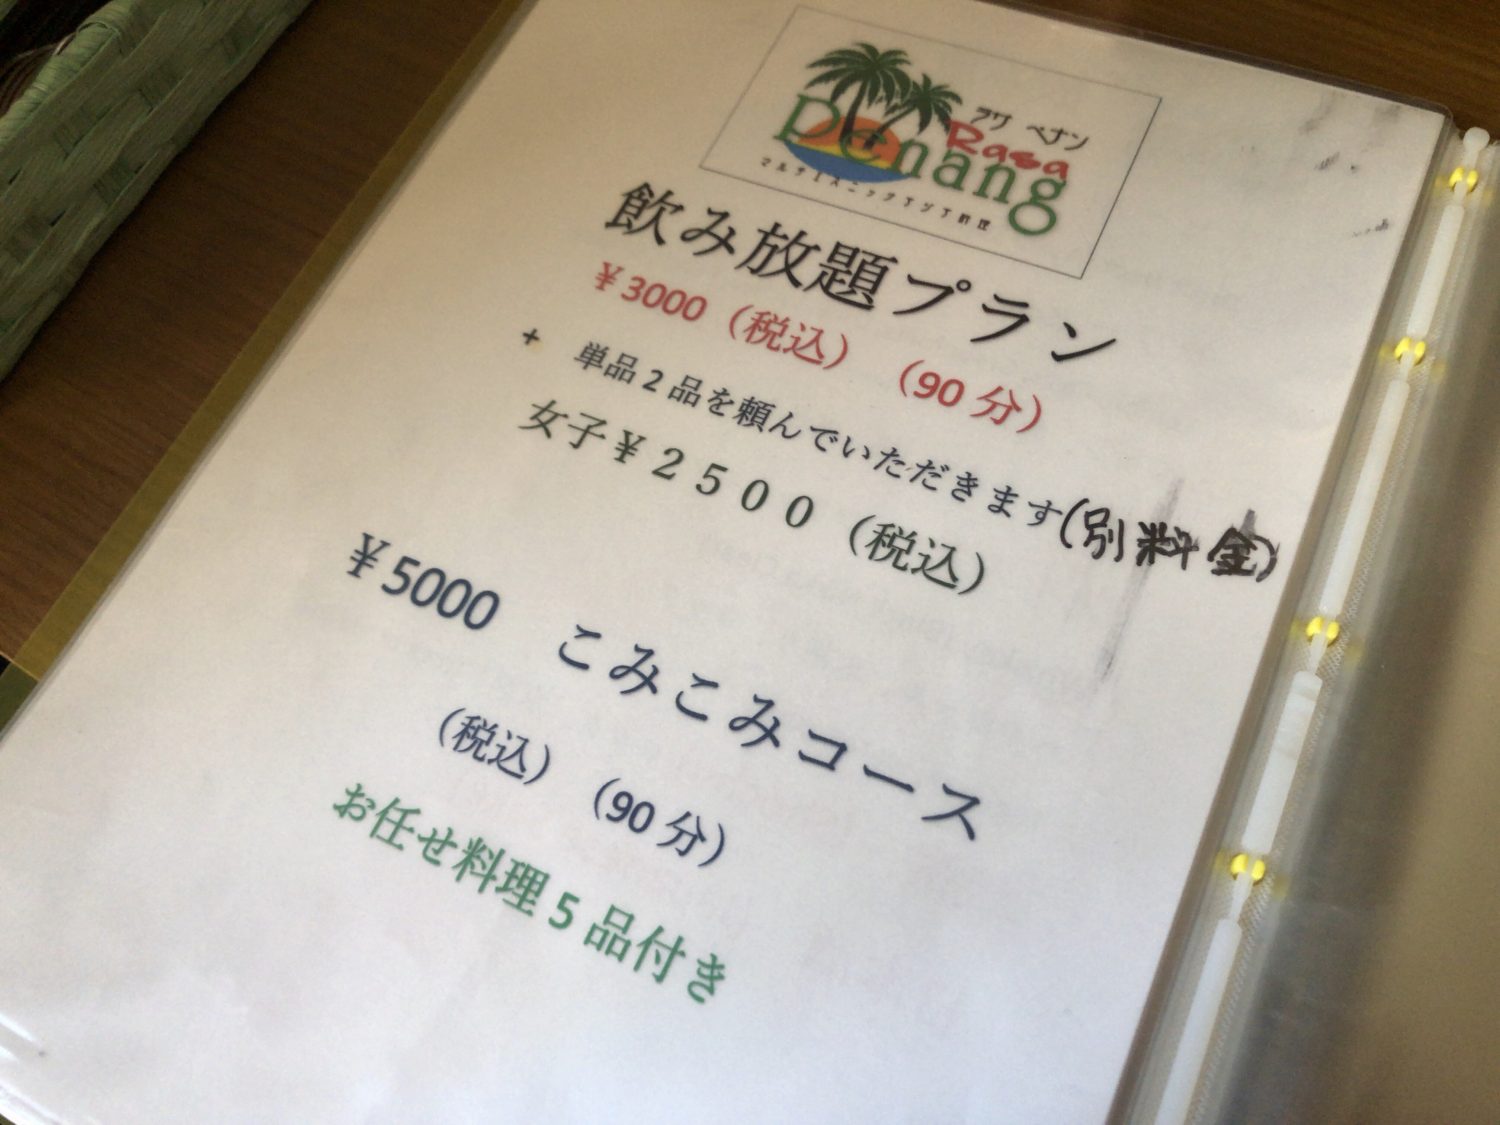 ラサ ペナン
Rasa
Penang
マルチエスニックアジア料理
飲み放題プラン
￥3000（税込）（90分）
+ 単品2品を頼んでいただきます(別料金)
女子￥２５００（税込）
￥5000 こみこみコース
（税込）（90分）
お任せ料理5品付き